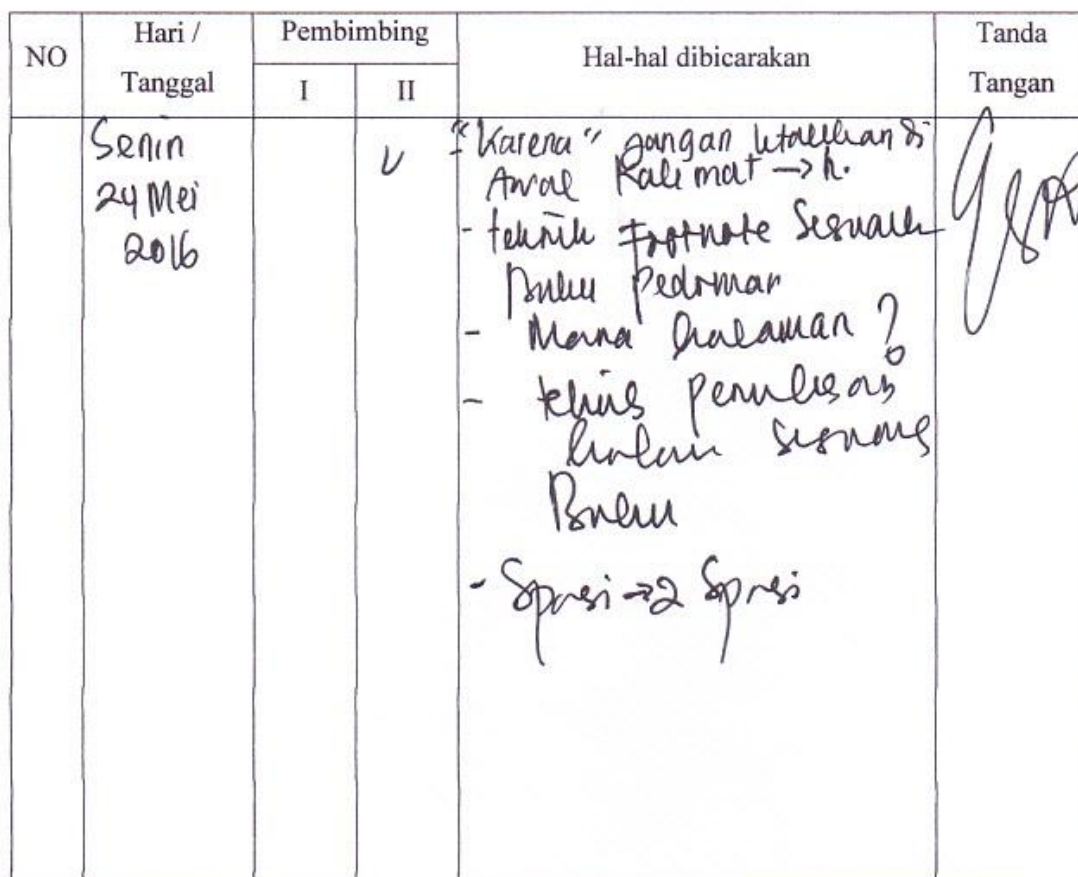 NO
Hari /
Tanggal
Pembimbing
I
II
Hal-hal dibicarakan
Tanda
Tangan
Senin
24 Mei
2016
- "Karena" jangan letakkan di
Awal Kalimat → h.
- teknik Footnote Sesuaikan
Buku Pedoman
- Mana halaman ?
- teknis penulisan
sesuai
Buku
- Spasi → 2 Spasi